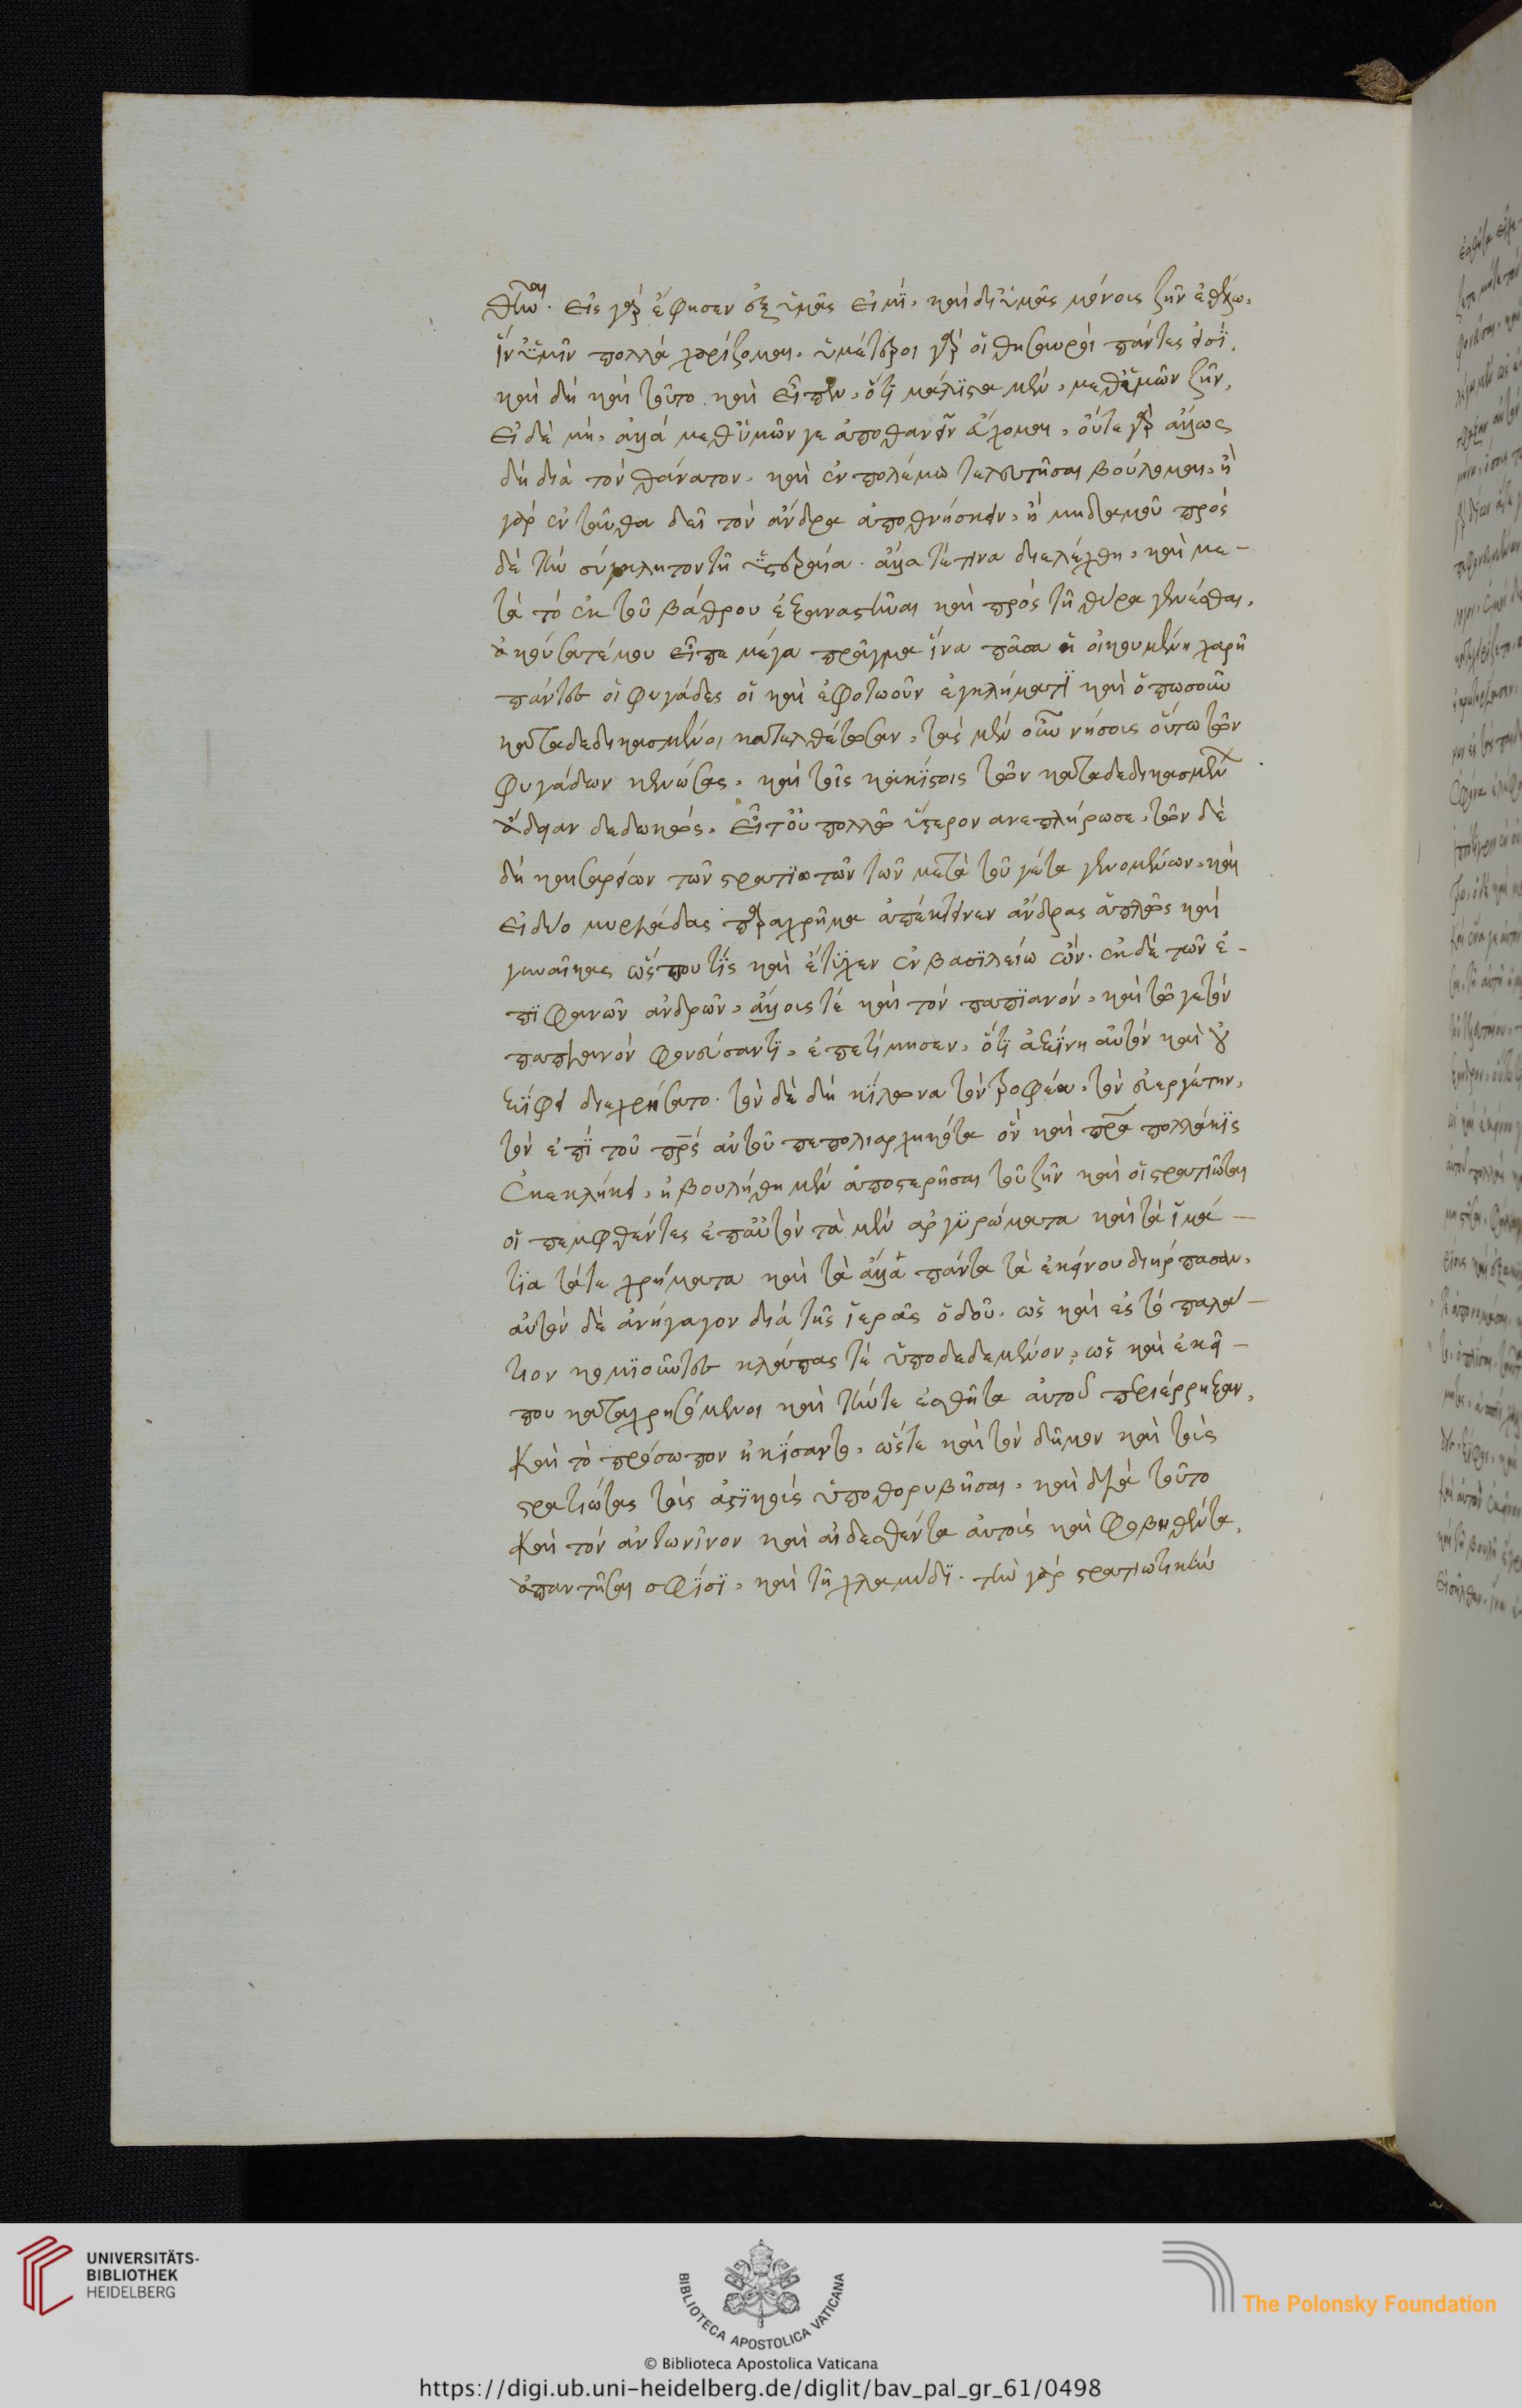 θῆναι. εἷς γὰρ ἔφησεν ἐξ ὑμῶν εἰμὶ, καὶ δι ὑμᾶς μόνοις ζῆν ἐθέλω,
ἵν ὑμῖν πολλὰ χαρίζομαι. ὑμέτεροι γὰρ οἱ θησαυροὶ πάντες εἰσὶ.
καὶ δὴ καὶ τοῦτο καὶ εἶπεν, ὅτι μάλιστα μὲν, μεθ ὑμῶν ζῆν,
εἰ δὲ μὴ, ἀλλὰ μεθ ὑμῶν γε ἀποθανεῖν εὔχομαι, οὔτε γὰρ ἄλλως
δὴ διὰ τὸν θάνατον, καὶ ἐν πολέμω τελευτῆσαι βούλομαι, ἢ
γὰρ ἐν ταῦθα δεῖ τὸν ἄνδρα ἀποθνήσκειν, ἢ μηδαμοῦ πρὸς
δὲ τὴν σύγκλητον τῆ ὑστεραία. ἄλλα τέ τινα διελέχθη, καὶ με-
τὰ τὸ ἐκ τοῦ βάθρου ἐξαναστῆναι καὶ πρὸς τῆ θύρα γενέσθαι,
ἀκούσατέ μου εἶπε μέγα πρᾶγμα ἵνα πᾶσα ἡ οἰκουμένη χαρῆ
πάντες οἱ φυγάδες οἱ καὶ ἐφ οτωοῦν ἐγκλήματι καὶ ὁπωσοῦν
καταδεδικασμένοι κατελθέτωσαν, τὰς μὲν οὖν νήσους οὕτω τῶν
φυγάδων κενώσας, καὶ τοῖς κακίστοις τῶν καταδεδικασμένων
ἄδειαν δεδωκώς, εἶτ οὐ πολλῶ ὕστερον ἀνεπλήρωσε, τῶν δὲ
δὴ καισαρείων τῶν στρατιωτῶν τῶν μετὰ τοῦ γέτα γενομένων, καὶ
εἰ δύο μυριάδας παραχρῆμα ἀπέκτεινεν ἄνδρας ἁπλῶς καὶ
γυναῖκας ὥς που τίς καὶ ἔτυχεν ἐν βασιλείω ὤν. ἐκ δὲ τῶν ἐ-
πιφανῶν ἀνδρῶν, ἄλλους τὲ καὶ τὸν παπιανόν, καὶ τῶ γε τὸν
παπιανὸν φονεύσαντι, ἐπετίμησεν, ὅτι ἀξίνη αὐτὸν καὶ οὐ
ξίφει διεχρήσατο. τὸν δὲ δὴ κίλωνα τὸν τροφέα, τὸν εὐεργέτην,
τὸν ἐπὶ τοῦ πρς αὐτοῦ πεπολιαρχηκότα ὃν καὶ πρα πολλάκις
ἐκεκλήκει, ἠβουλήθη μὲν ἀποστερῆσαι τοῦ ζῆν καὶ οἱ στρατιῶται
οἱ πεμφθέντες ἐπ αὐτὸν τὰ μὲν ἀργυρώματα καὶ τὰ ἱμά-
τια τάτε χρήματα καὶ τὰ ἄλλα πάντα τὰ ἐκείνου διήρπασαν,
αὐτὸν δὲ ἀνήγαγον διὰ τῆς ἱερᾶς ὁδοῦ. ὡς καὶ ἐς τὸ παλά-
τιον κομιοῦντες κλάυπας τὲ ὑποδεδεμένον, ὡς καὶ ἐκεῖ-
που καταχρησόμενοι καὶ τήντε ἐσθῆτα αὐτοῦ περιέρρηξαν,
καὶ τὸ πρόσωπον ἠκίσαντο, ὥστε καὶ τὸν δῆμον καὶ τοὺς
στρατιώτας τοὺς ἀστικοὺς ὑποθορυβῆσαι, καὶ διὰ τοῦτο
καὶ τὸν ἀντωνῖνον καὶ αἰδεσθέντα αὐτοὺς καὶ φοβηθέντα,
ἀπαντῆσαι σφίσι, καὶ τῆ χλαμύδι. τὴν γὰρ στρατιωτικὴν
UNIVERSITÄTS-
BIBLIOTHEK
HEIDELBERG
BIBLIOTECA APOSTOLICA VATICANA
The Polonsky Foundation
© Biblioteca Apostolica Vaticana
https://digi.ub.uni-heidelberg.de/diglit/bav_pal_gr_61/0498